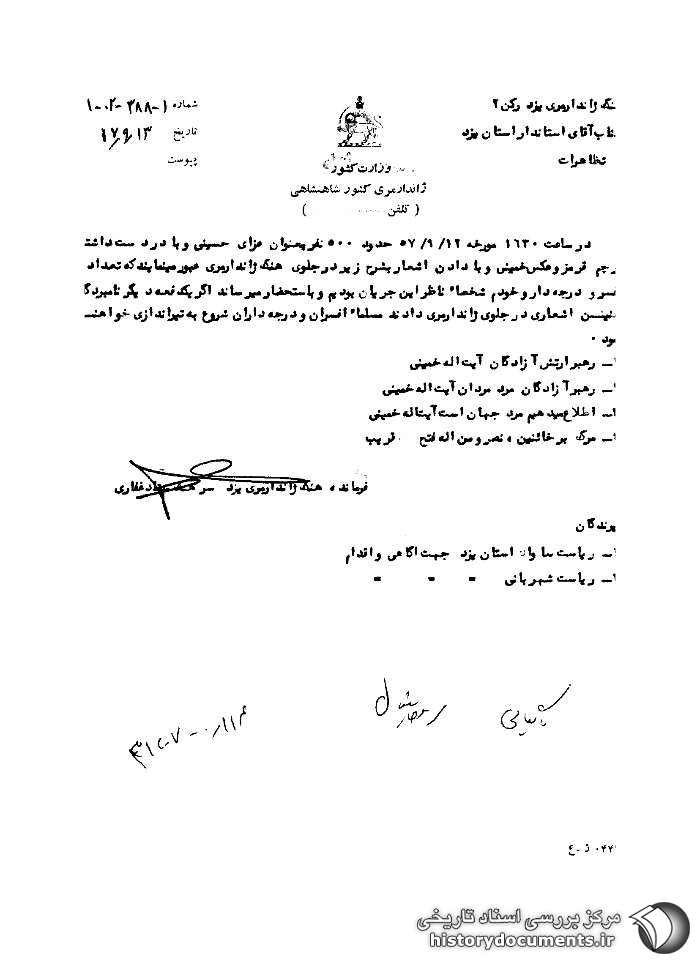 هنگ ژاندارمری یزد رکن ۲
جناب آقای استاندار استان یزد
تظاهرات
شماره
تاریخ ۵۷/۹/۱۳
پیوست
وزارت کشور
ژاندارمری کشور شاهنشاهی
( تلفن ............ )
در ساعت ۱۶۳۰ مورخه ۵۷/۹/۱۲ حدود ۵۰۰ نفر بعنوان عزای حسینی و با در دست داشتن
پرچم قرمز و عکس خمینی و با دادن اشعار بشرح زیر در جلوی هنگ ژاندارمری عبور مینمایند که تعداد
افسر و درجه دار و خودم شخصاً ناظر این جریان بودیم و باستحضار میرساند اگر یکدفعه دیگر نامبردگان
چنین اشعاری در جلوی ژاندارمری دادند مسلماً افسران و درجه داران شروع به تیراندازی خواهند
نمود .
۱ــ رهبر ارتش آزادگان آیت اله خمینی
ــ رهبر آزادگان مرد مردان آیت اله خمینی
ــ اطلاع میدهیم مرد جهان است آیت اله خمینی
ــ مرگ بر خائنین ، نصر و من اله فتح قریب
فرمانده هنگ ژاندارمری یزد سرهنگ غفاری
گیرندگان
۱ــ ریاست ساواک استان یزد جهت آگاهی و اقدام
ــ ریاست شهربانی " " "
بایگانی
۰۴۴ ذ ـ ع
مرکز بررسی اسناد تاریخی
historydocuments.ir